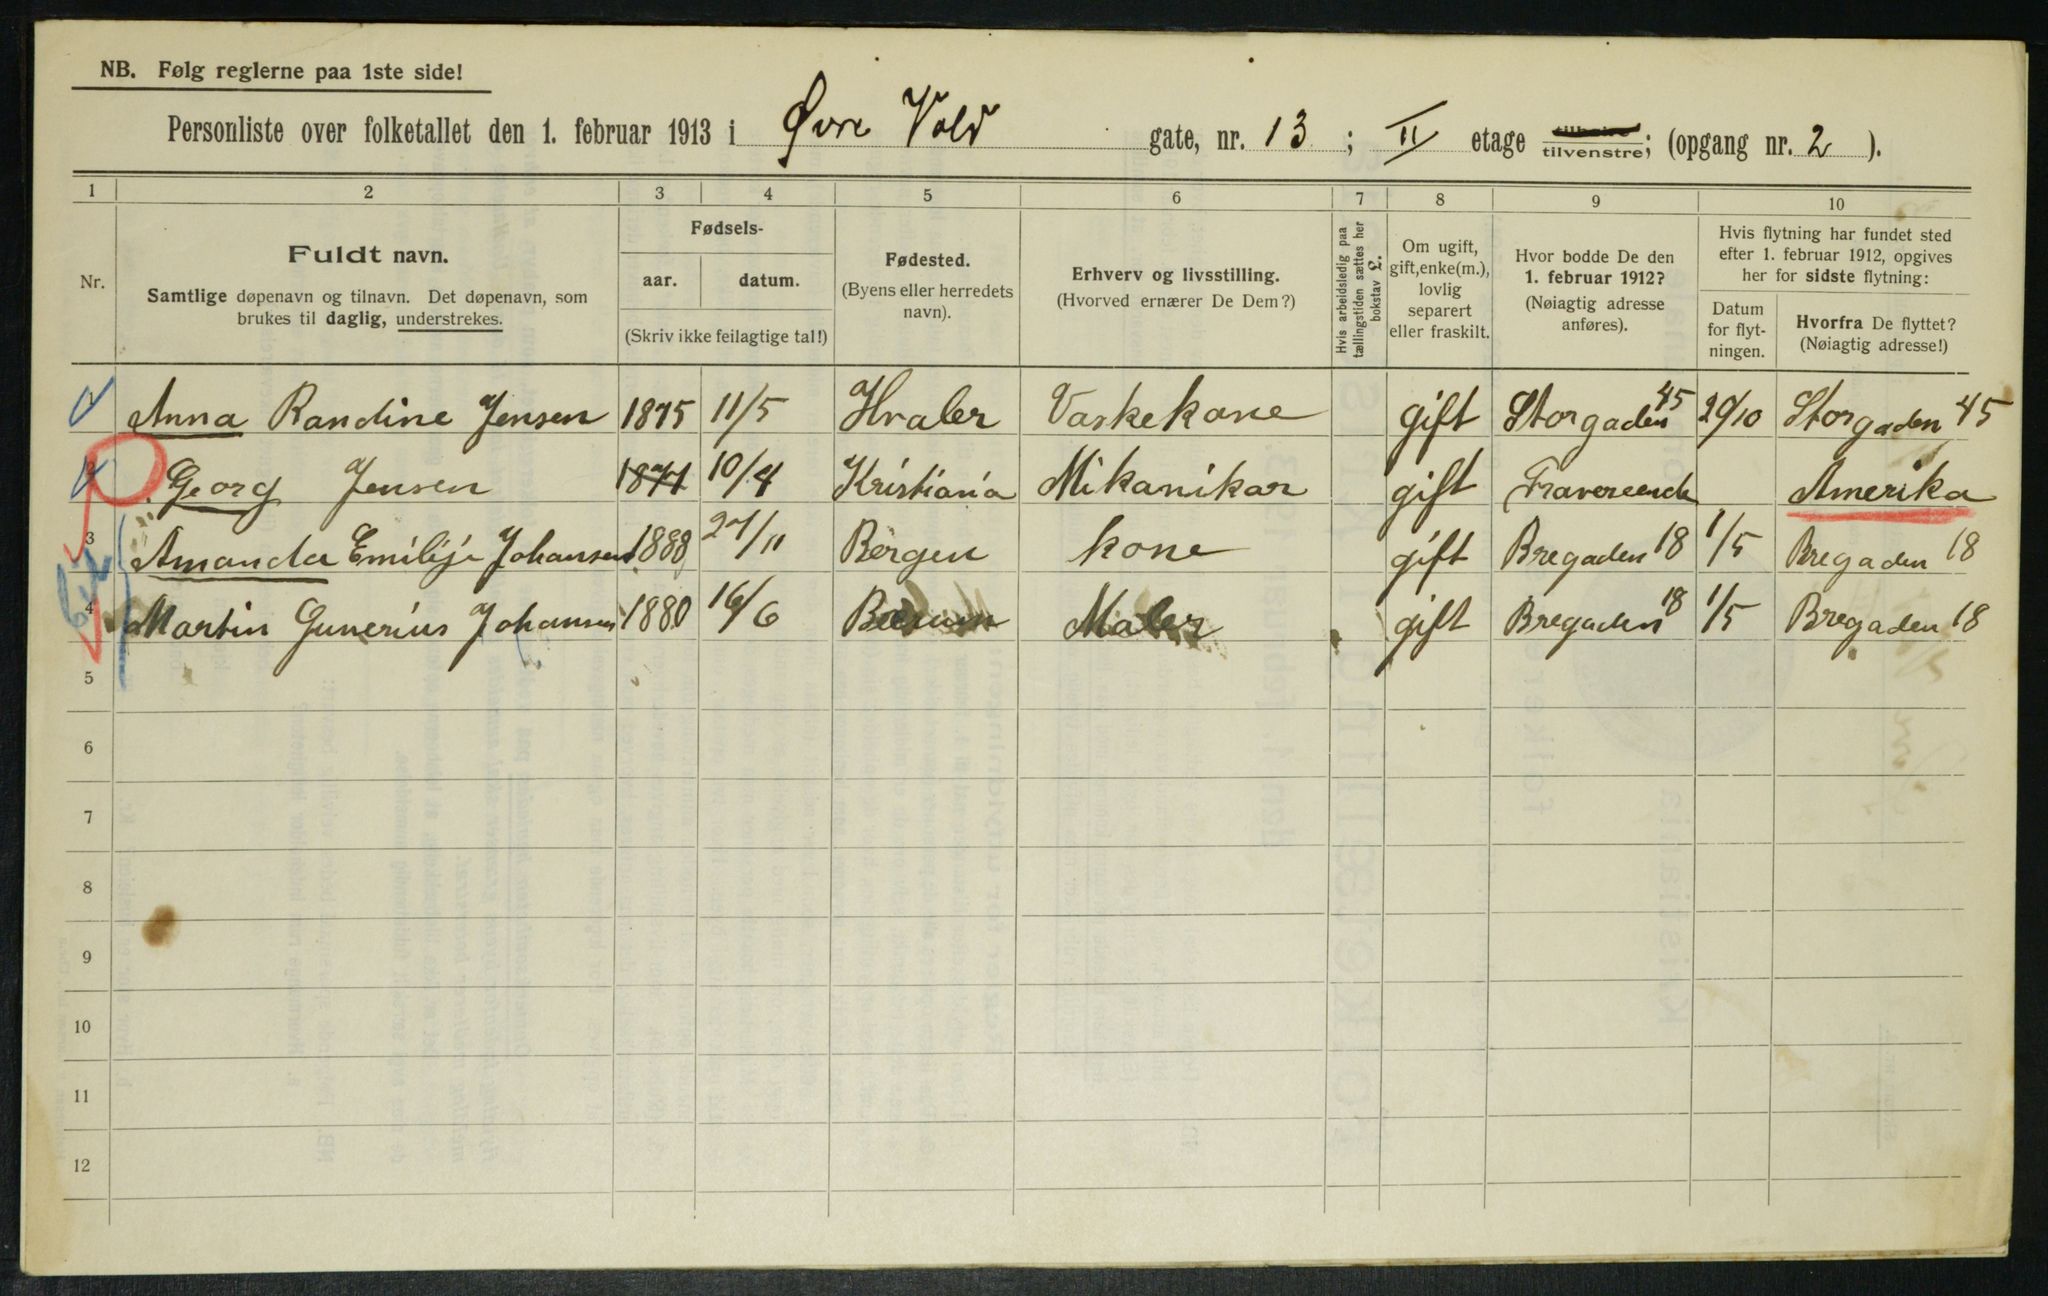 NB. Følg reglerne paa 1ste side!
Personliste over folketallet den 1. februar 1913 i Øvre Vold gate, nr. 13 ; II etage tilhøire tilvenstre; (opgang nr. 2 ).
1 2 3 4 5 6 7 8 9 10
Nr.
Fuldt navn.
Samtlige døpenavn og tilnavn. Det døpenavn, som
brukes til daglig, understrekes.
Fødsels-
aar. datum.
(Skriv ikke feilagtige tal!)
Fødested.
(Byens eller herredets
navn).
Erhverv og livsstilling.
(Hvorved ernærer De Dem?)
Hvis arbeidsledig paa
tællingstiden sættes her
bokstav L.
Om ugift,
gift, enke(m.),
lovlig
separert
eller fraskilt.
Hvor bodde De den
1. februar 1912?
(Nøiagtig adresse
anføres).
Hvis flytning har fundet sted
efter 1. februar 1912, opgives
her for sidste flytning:
Datum
for flyt-
ningen.
Hvorfra De flyttet?
(Nøiagtig adresse!)
Anna Randine Jensen 1875 11/5 Hvaler Vaskekone gift Storgaden 45 20/10 Storgaden 45
Georg Jensen 10/4 Kristiania Mikanikar gift Amerika
3 Amanda Emilije Johansen 1888 27/11 Bergen kone gift Bregaden 18 1/5 Bregaden 18
4 Martin Gunerius Johansen 1880 16/6 Bærum Maler gift Bregaden 18 1/5 Bregaden 18
5
6
7
8
9
10
11
12